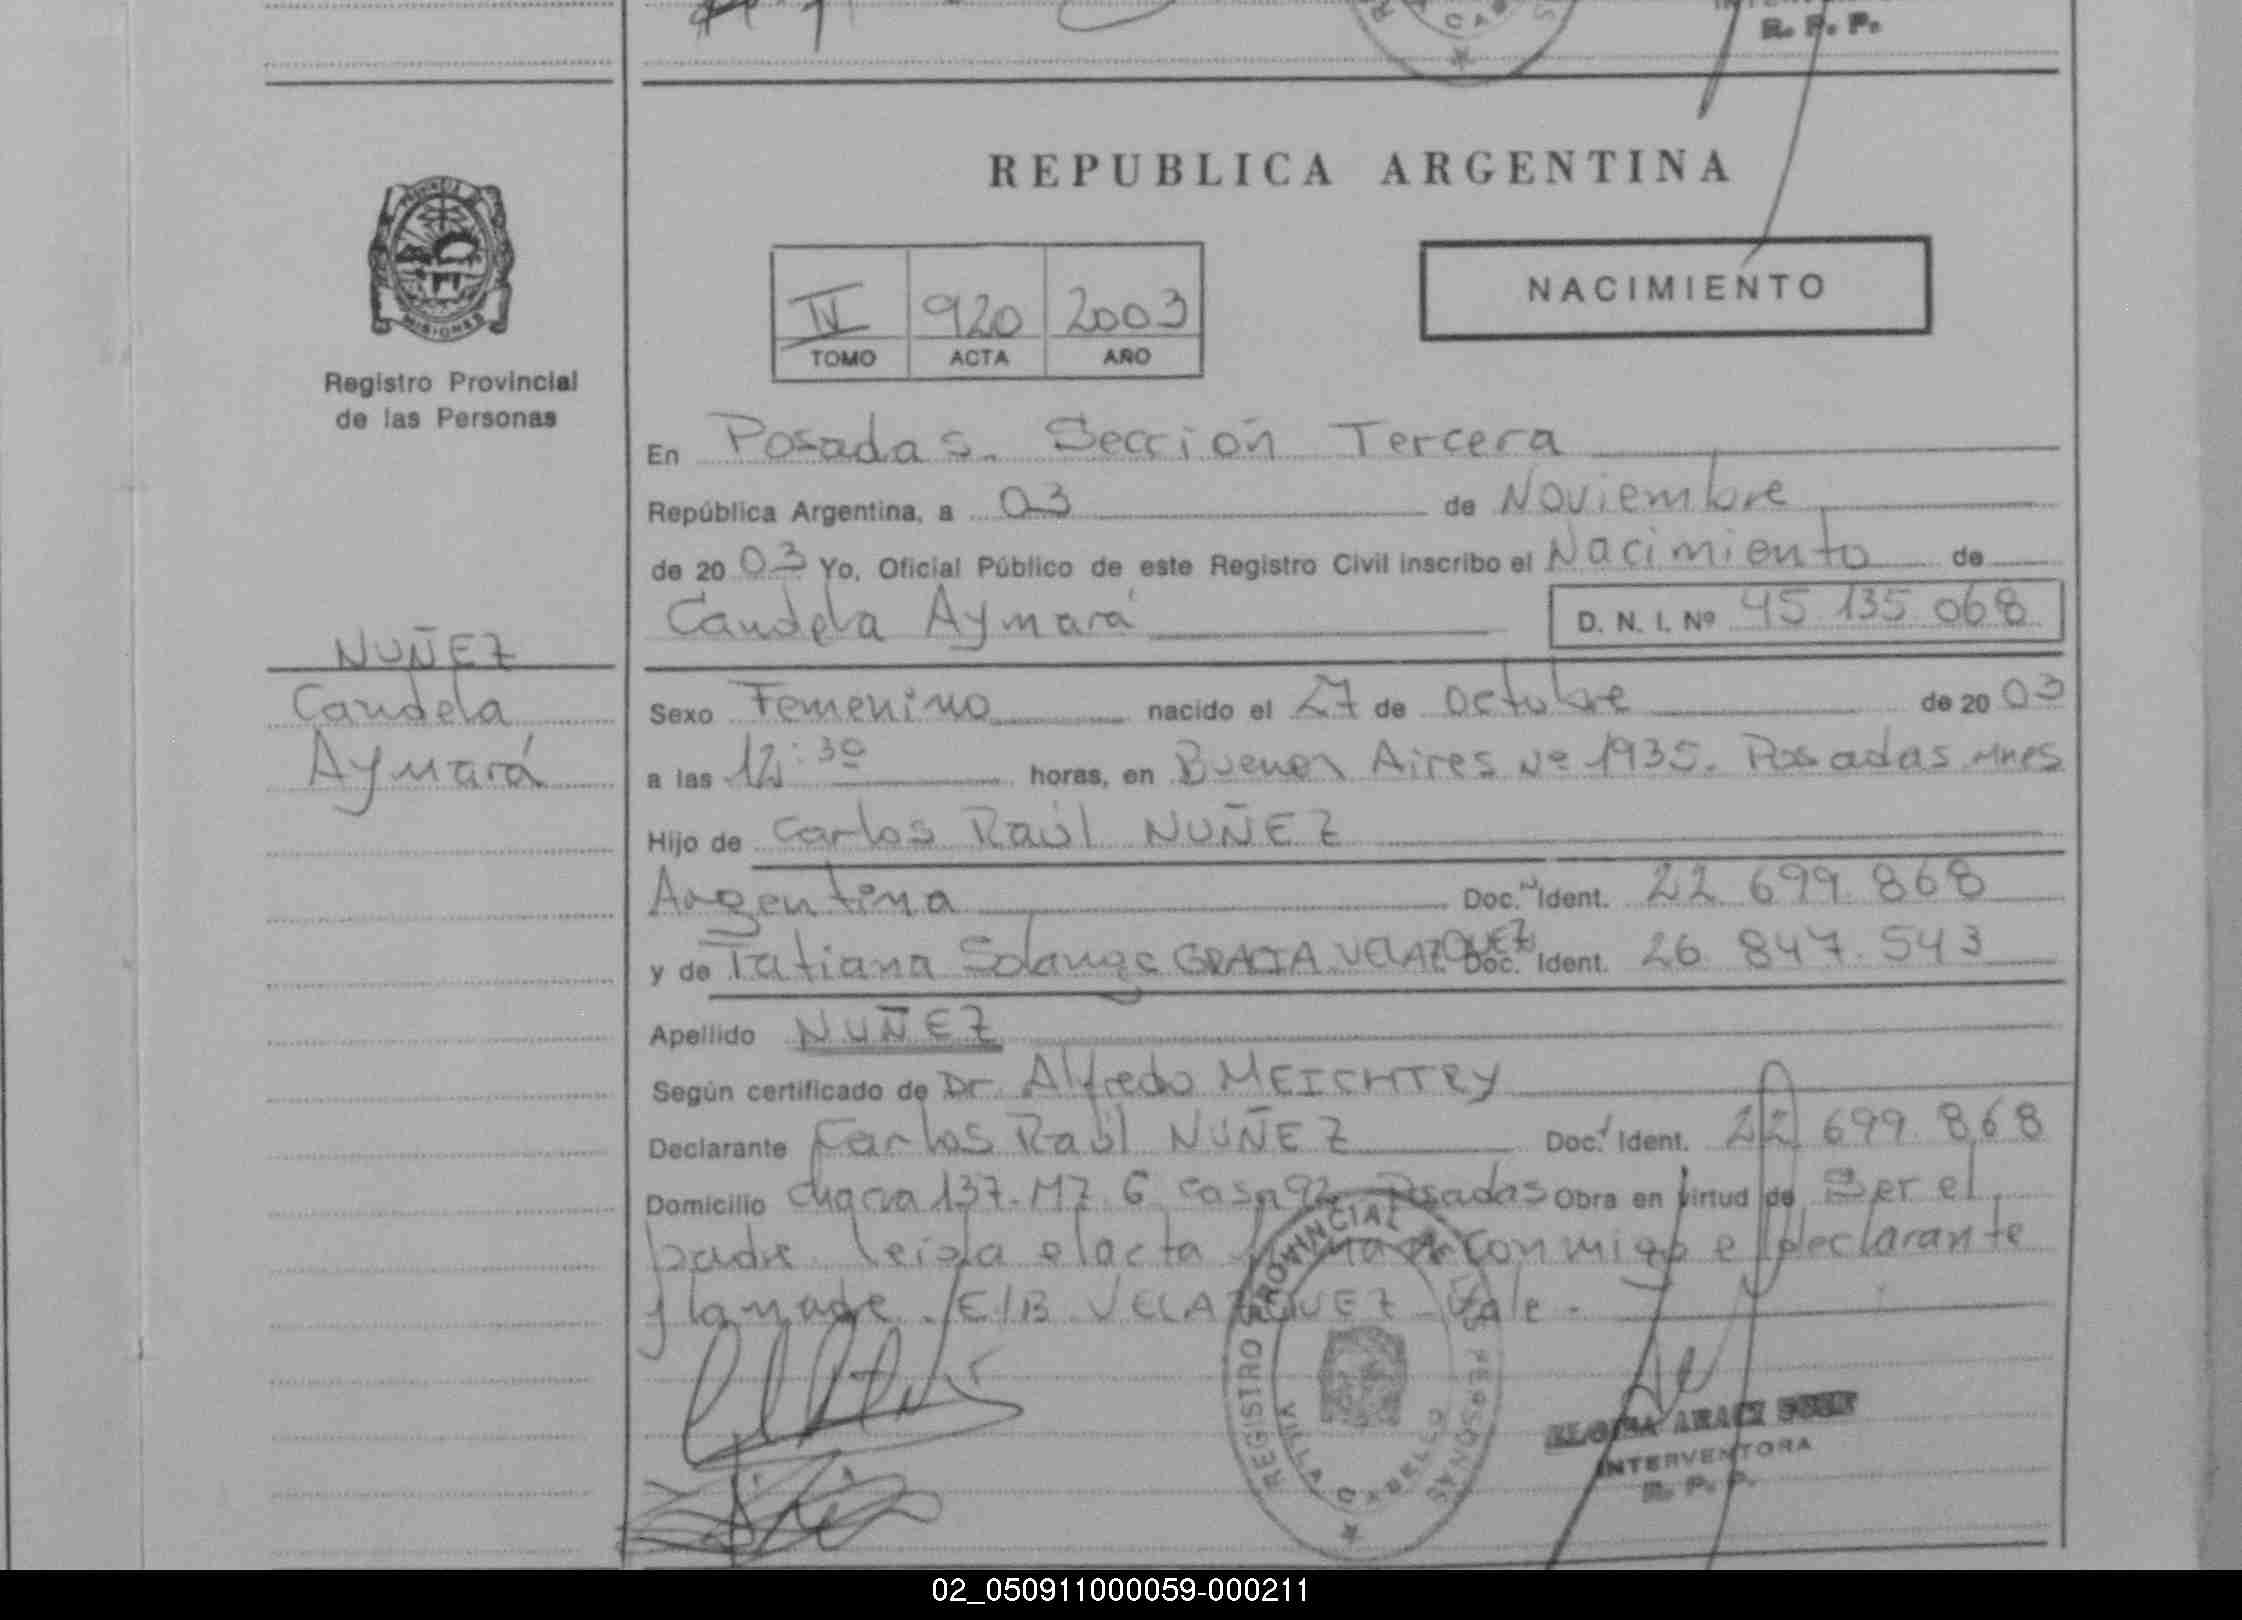 R. P. P.
PROVINCIA
MISIONES
Registro Provincial
de las Personas
NUÑEZ
Candela
Aymará
REPUBLICA ARGENTINA
IV 920 2003
TOMO ACTA AÑO
NACIMIENTO
En Posadas. Sección Tercera
República Argentina, a 03 de Noviembre
de 20 03 Yo, Oficial Público de este Registro Civil inscribo el Nacimiento de
Candela Aymará D. N. I. Nº 45 135 068
Sexo Femenino nacido el 27 de octubre de 20 03
a las 12:30 horas, en Buenos Aires Nº 1935. Posadas Mnes
Hijo de Carlos Raúl NUÑEZ
Argentina Doc. Ident. 22 699 868
y de Tatiana Solange GRACIA VELAZQUEZ Doc. Ident. 26 847.543
Apellido NUÑEZ
Según certificado de Dr. Alfredo MEICHTRY
Declarante Carlos Raúl NUÑEZ Doc. Ident. 22 699 868
Domicilio Chacra 137-MZ 6 casa 92 Posadas Obra en virtud de Ser el
padre leida el acta firman conmigo el declarante
y la madre. E/B VELAZQUEZ Vale.
REGISTRO PROVINCIAL DE LAS PERSONAS
VILLA CABELLO
INTERVENTORA
R. P. P.
02_050911000059-000211